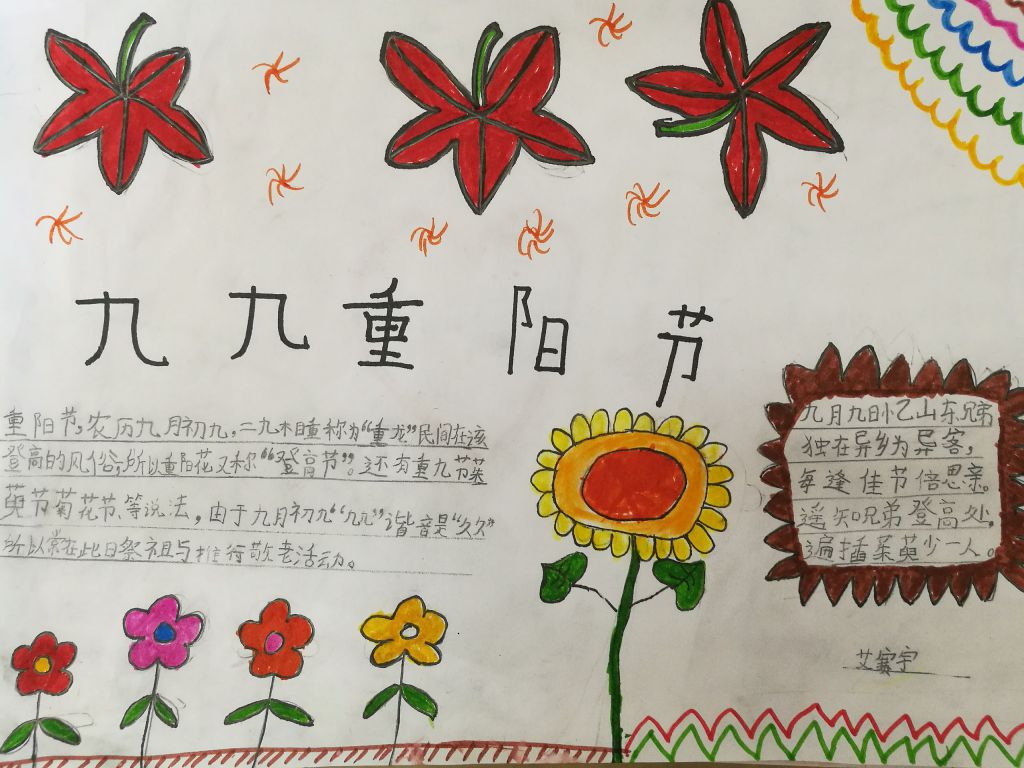 九九重阳节
重阳节,农历九月初九,二九木目重称为“重龙”民间在该
登高的风俗,所以重阳花又称“登高节”。还有重九节茱
萸节菊花节、等说法,由于九月初九“九九”谐音是“久久”
所以常在此日祭祖与推行敬老活动。
九月九日忆山东兄弟
独在异乡为异客,
每逢佳节倍思亲。
遥知兄弟登高处,
遍插茱萸少一人。
艾宇